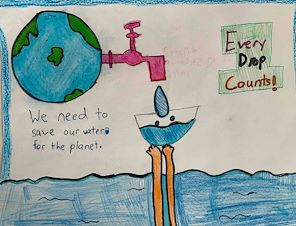 Every
Drop
Counts!
We need to
save our water
for the planet.